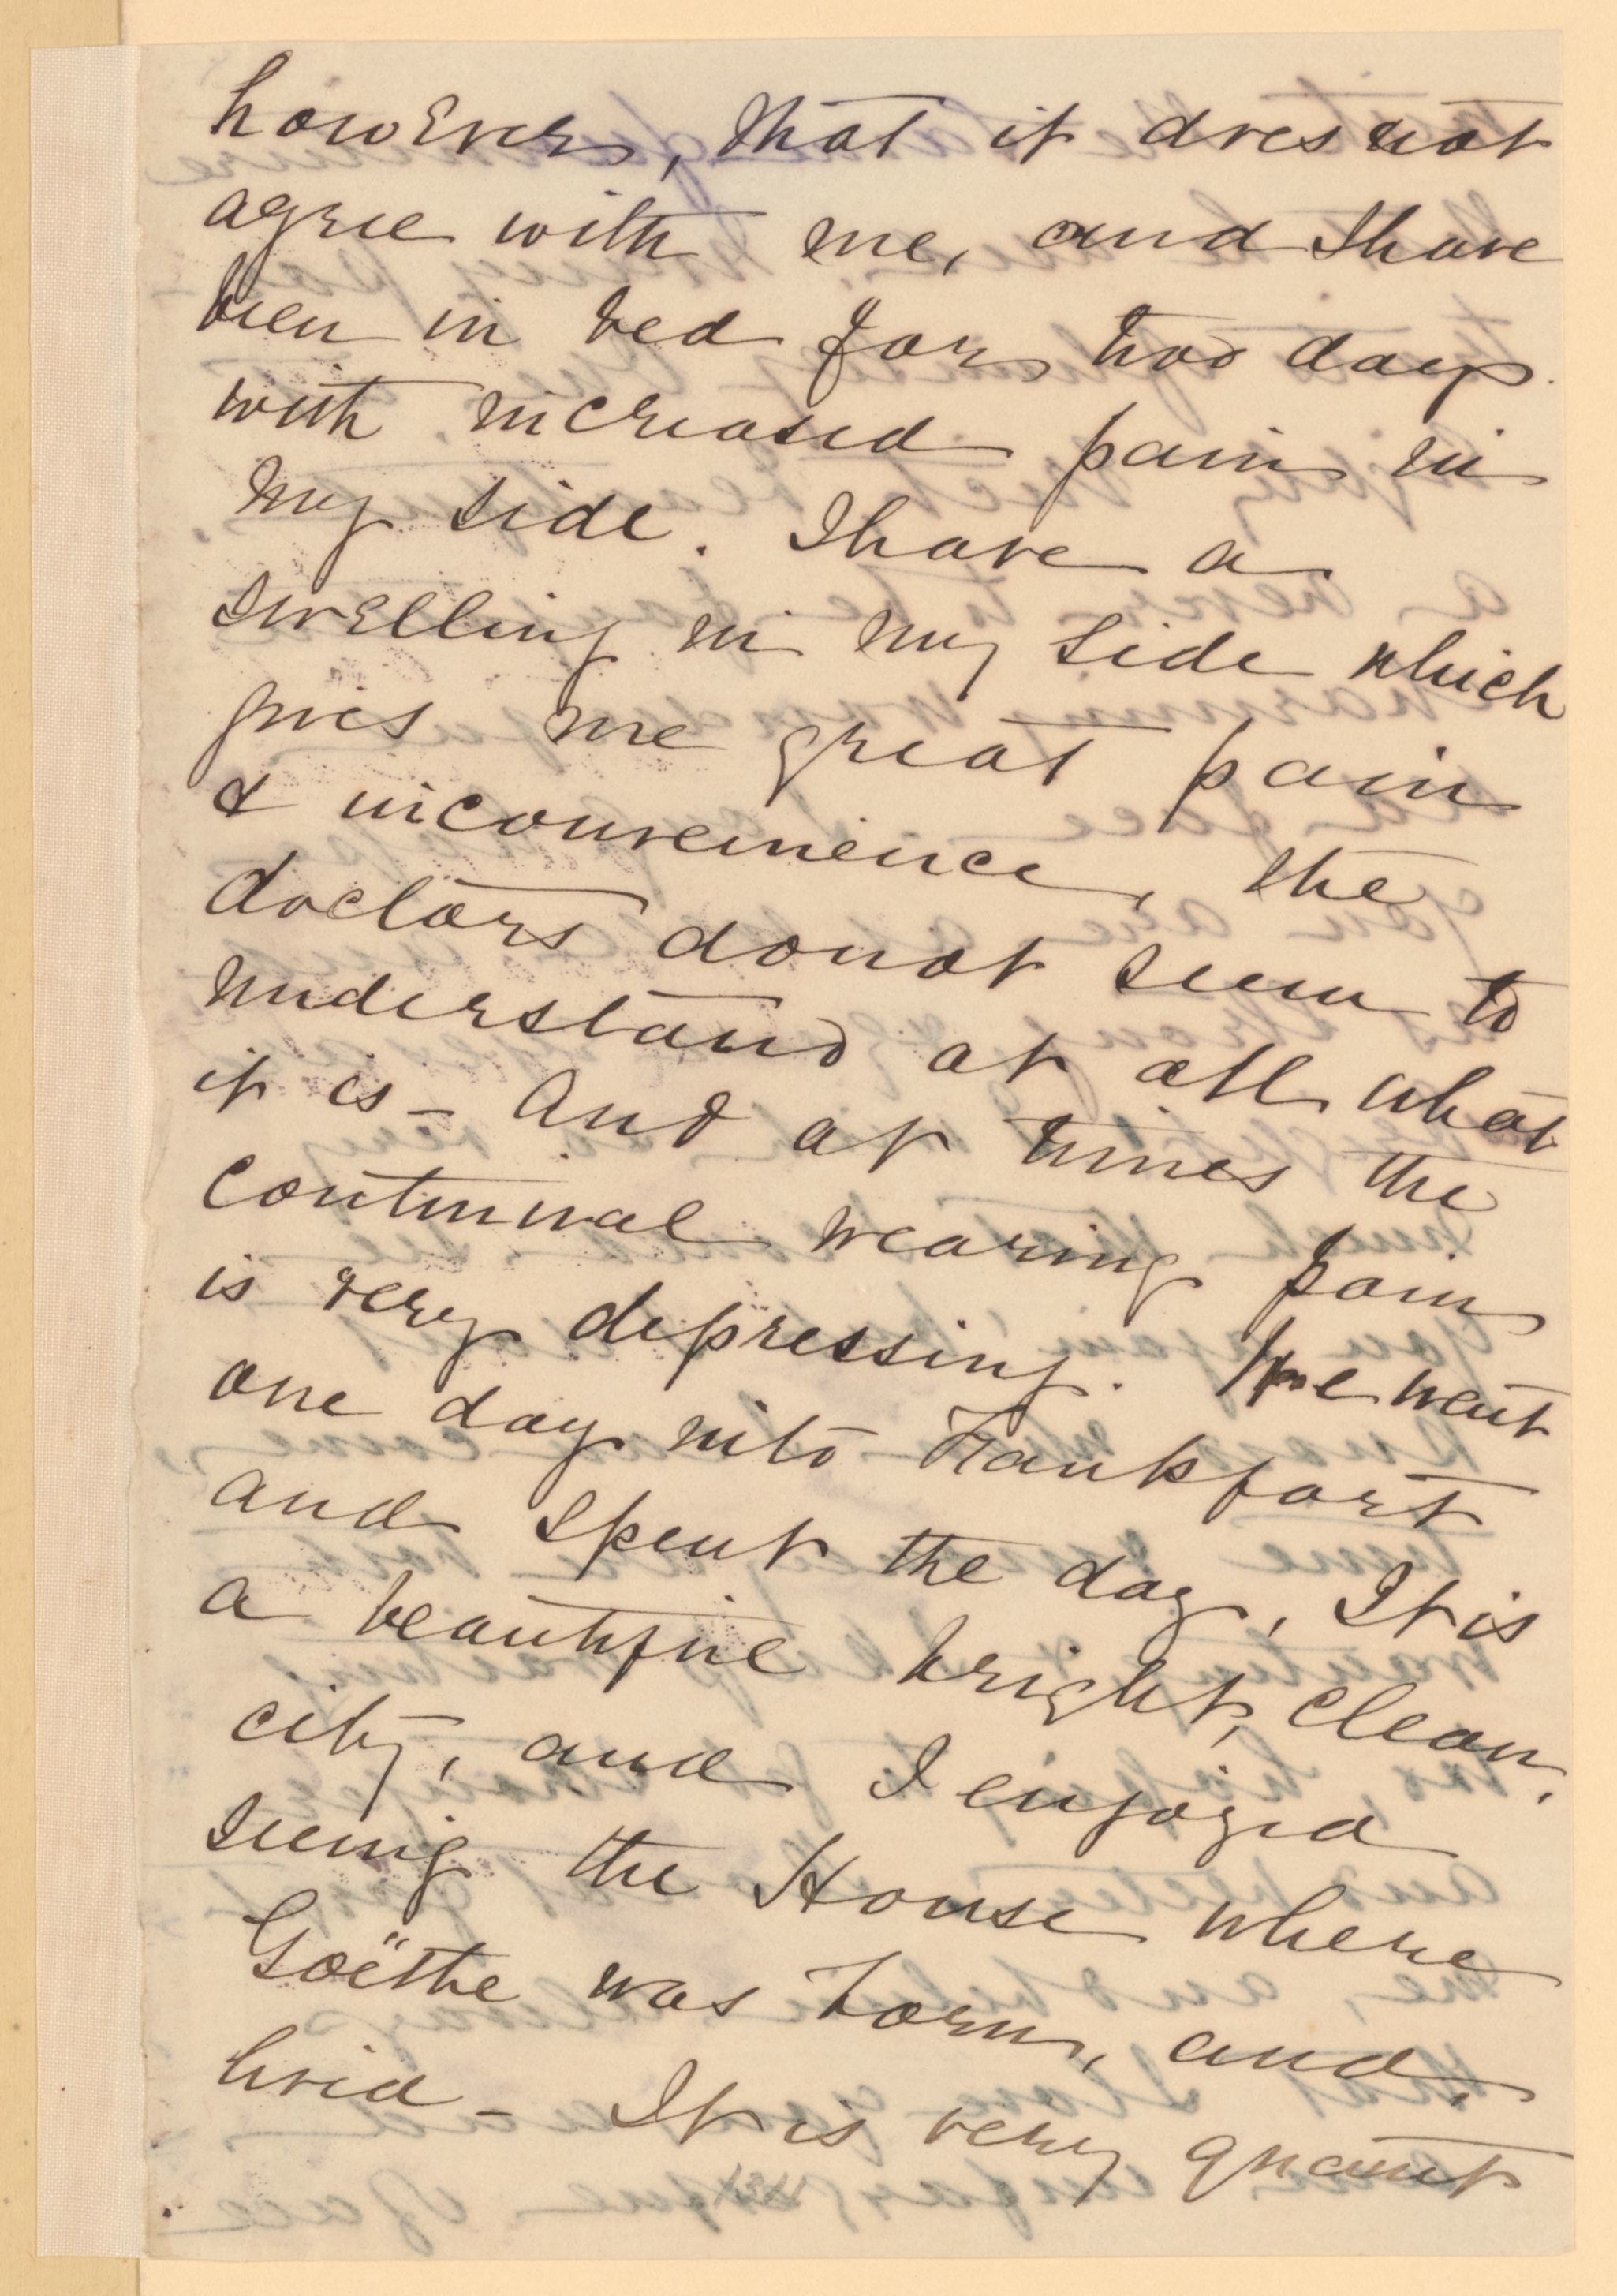 however, that it does not
agree with me, and I have
been in bed for two days
with increased pain in
my side. I have a
swelling in my side which
gives me great pain
& inconvenience, the
doctors do not seem to
understand at all what
it is - and at times the
continual wearing pain
is very depressing. We went
one day into Frankfort
and spent the day, It is
a beautiful bright, clean,
city, and I enjoyed
seeing the House where
Goëthe was born, and,
lived - It is very quaint